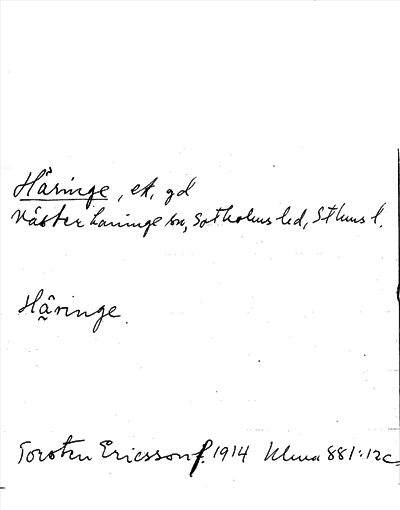 Häringe, ek. gd
Västerhaninge sn, Sotholms hd, Sthms l.
Häringe.
Torsten Ericsson f. 1914 Ulma 881:12c